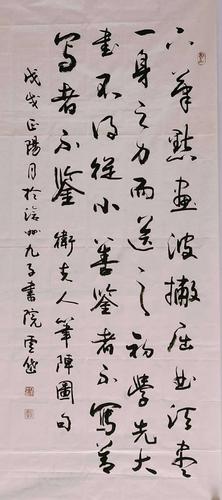 下筆點畫波撇屈曲須盡
一身之力而送之初學先大
書不得從小善鑒者不寫善
寫者不鑒 衛夫人筆陣圖句
戊戌正陽月於滄州九書院雲